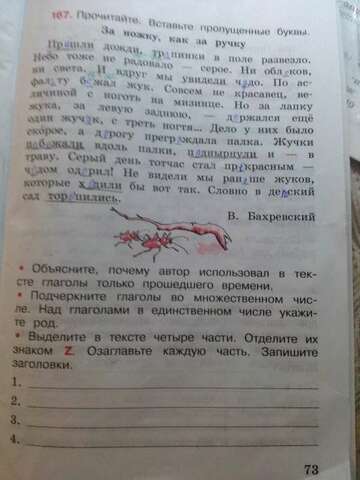 167. Прочитайте. Вставьте пропущенные буквы.
За ножку, как за ручку
Прошли дожди, тропинки в поле развезло.
Небо тоже не радовало — серое. Ни облаков,
ни света. И вдруг мы увидели чудо. По ас-
фальту бежал жук. Совсем не красавец, ве-
личиной с ноготь на мизинце. Но за лапку
жука, за левую заднюю, — держался ещё
один жучок, с треть ногтя... Дело у них было
скорое, а дорогу преграждала палка. Жучки
побежали вдоль палки, поднырнули и — в
траву. Серый день тотчас стал прекрасным —
чудом одарил! Не видели мы раньше жуков,
которые ходили бы вот так. Словно в детский
сад торопились.
В. Бахревский
• Объясните, почему автор использовал в тек-
сте глаголы только прошедшего времени.
• Подчеркните глаголы во множественном чис-
ле. Над глаголами в единственном числе укажи-
те род.
• Выделите в тексте четыре части. Отделите их
знаком Z. Озаглавьте каждую часть. Запишите
заголовки.
1.
2.
3.
4.
73